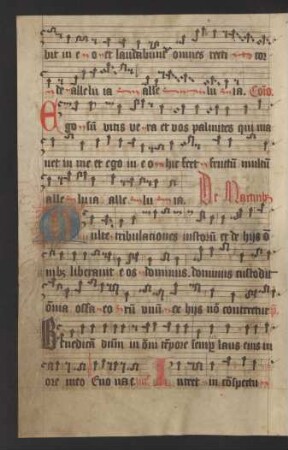 bit in e o et laudabunt omnes recti cor
de alleluia alle luia. Co͞io.
Ego su͞ vitis vera et vos palmites qui ma
net in me et ego in eo hic fert fructu͞ multu͞
alleluia alle luia. De Martirib͛
Multe tribulationes iustoru͞ et de hijs o͞
nib͛ liberavit eos dominus. dominus custodit
o͞nia ossa eoru͞ unu͞ ex hijs no͞ conteretur
Benedica͞ d͞nm in o͞ni te͞pore semp͛ laus eius in
ore meo Evovae Intret in co͞spectu